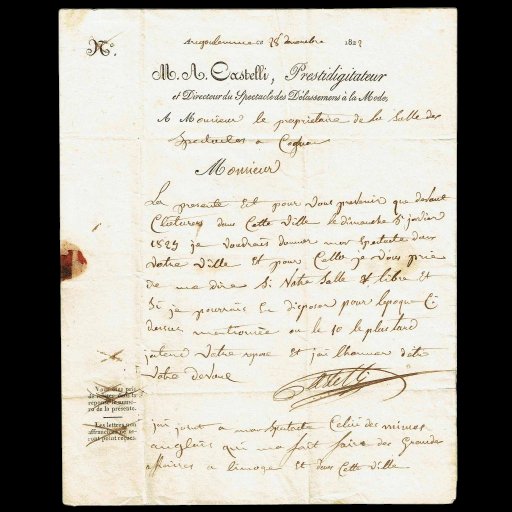 N°.
angoulemme ce 28 decembre 182
M. A. Castelli, Prestidigitateur
et Directeur du Spectacle des Délassemens à la Mode,
A Monsieur le proprietaire de la Salle des
Spectacles a
Monsieur
La presente Est pour vous prevenir que devant
Cloturer dans Cette ville le dimanche 5 janvier
1823 je voudrais donner mon Spectacle dans
votre ville Et pour Cella je vous prie
de me dire Si Votre Salle Est libre Et
Si je pourrais En disposer pour lepoque Ci
dessus mentionnée ou le 10 le plus tard
jatend Votre reponse Et jai lhonneur d'etre
Votre devoué
Castelli
Vous êtes prié
de mettre dans la
réponse le numé-
ro de la présente.
Les lettres non
affranchies ne se-
ront point reçues.
jai joint a mon Spectacle Celui des mimes
anglais qui ma fait faire des Grandes
affaires a limoge Et dans Cette ville